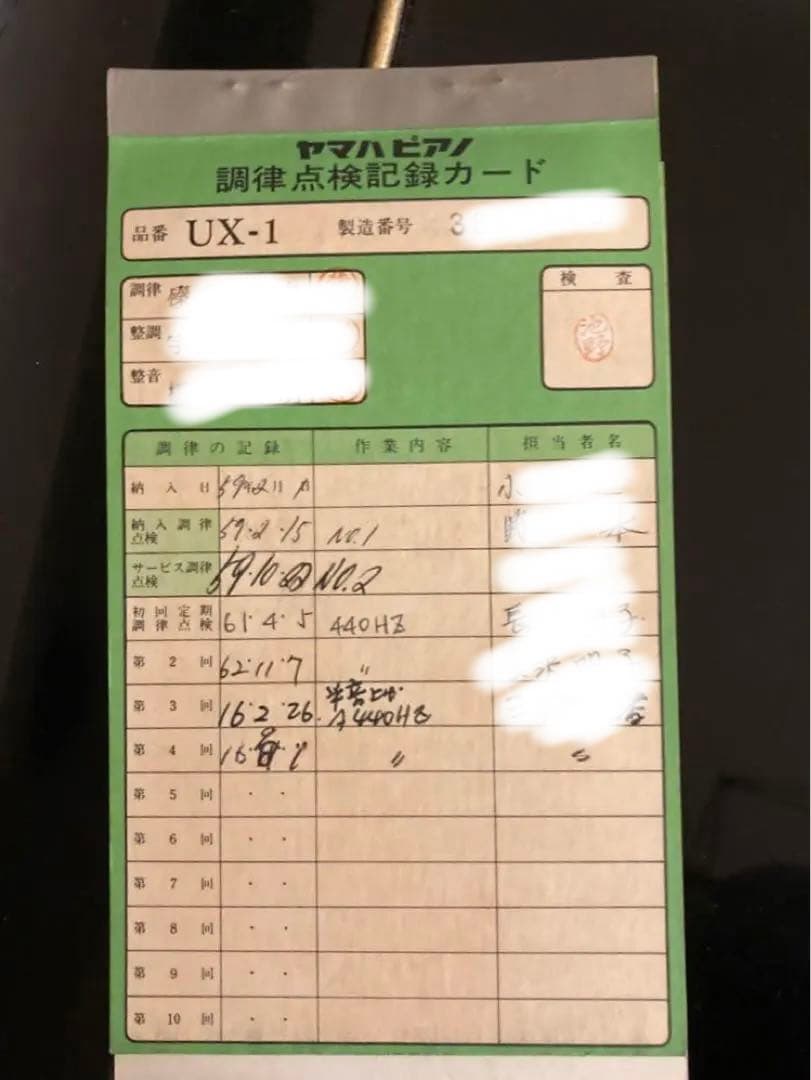 ヤマハピアノ
調律点検記録カード
品番 UX-1 製造番号 3
調律
整調
整音
検査
池野
調律の記録 作業内容 担当者名
納入日 59 2 11
納入調律点検 59・2・15 NO.1 本
サービス調律点検 59・10・22 NO.2
初回定期調律点検 61・4・5 440HZ 長
第2回 62・11・7 〃
第3回 16・2・26 半音上げ A440HZ
第4回 16 〃 〃
第5回 ・ ・
第6回 ・ ・
第7回 ・ ・
第8回 ・ ・
第9回 ・ ・
第10回 ・ ・